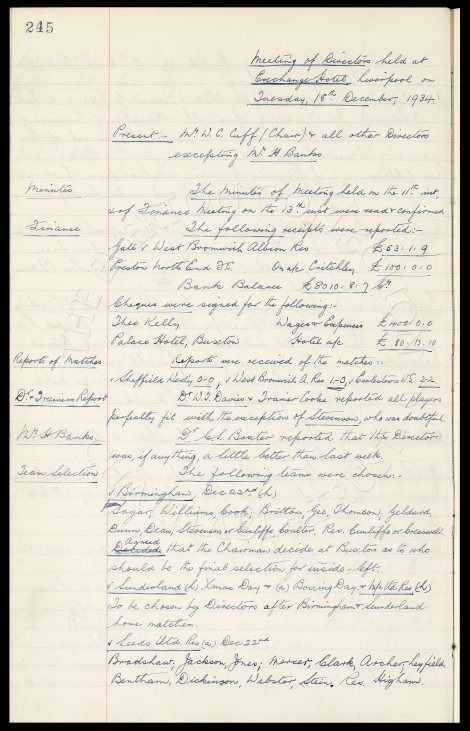 245
Meeting of Directors held at
Exchange Hotel, Liverpool on
Tuesday, 18th December, 1934.
Present :- Mr W. C. Cuff (Chair) & all other Directors
excepting Mr H. Banks.
Minutes The Minutes of Meeting held on the 11th inst,
& of Finance Meeting on the 13th inst were read & confirmed
Finance The following receipts were reported:-
Gate v West Bromwich Albion Res £53. 1. 9
Preston North End F.C. On a/c Critchley £100. 0. 0
Bank Balance £8010. 8. 7 Cr
Cheques were signed for the following:-
Theo Kelly Wages & Expenses £400. 0. 0
Palace Hotel, Buxton Hotel a/c £80. 13. 10
Reports of Matches Reports were received of the matches :-
v Sheffield Wedy 0-0, v West Bromwich A. Res 1-0, v Earlestown W.S. 2-2
Dr & Trainers Report Dr W. T. Davies & Trainer Cooke reported all players
perfectly fit with the exception of Stevenson, who was doubtful.
Mr H Banks Dr C. S. Baxter reported that this Director
was, if anything, a little better than last week.
Team Selection The following teams were chosen :-
v Birmingham, Dec 22nd (h)
Sagar, Williams, Cook, Britton, Gee, Thomson, Geldard,
Dunn, Dean, Stevenson or Cunliffe, Coulter, Res. Cunliffe or Cresswell
Agreed
Decided that the Chairman decide at Buxton as to who
should be the final selection for inside-left.
v Sunderland (h) Xmas Day & (a) Boxing Day & M/c Utd Res (h)
To be chosen by Directors after Birmingham & Sunderland
home matches.
v Leeds Utd. Res (a) Dec 22nd
Bradshaw, Jackson, Jones; Mercer, Clark, Archer, Leyfield,
Bentham, Dickinson, Webster, Stein. Res. Higham.